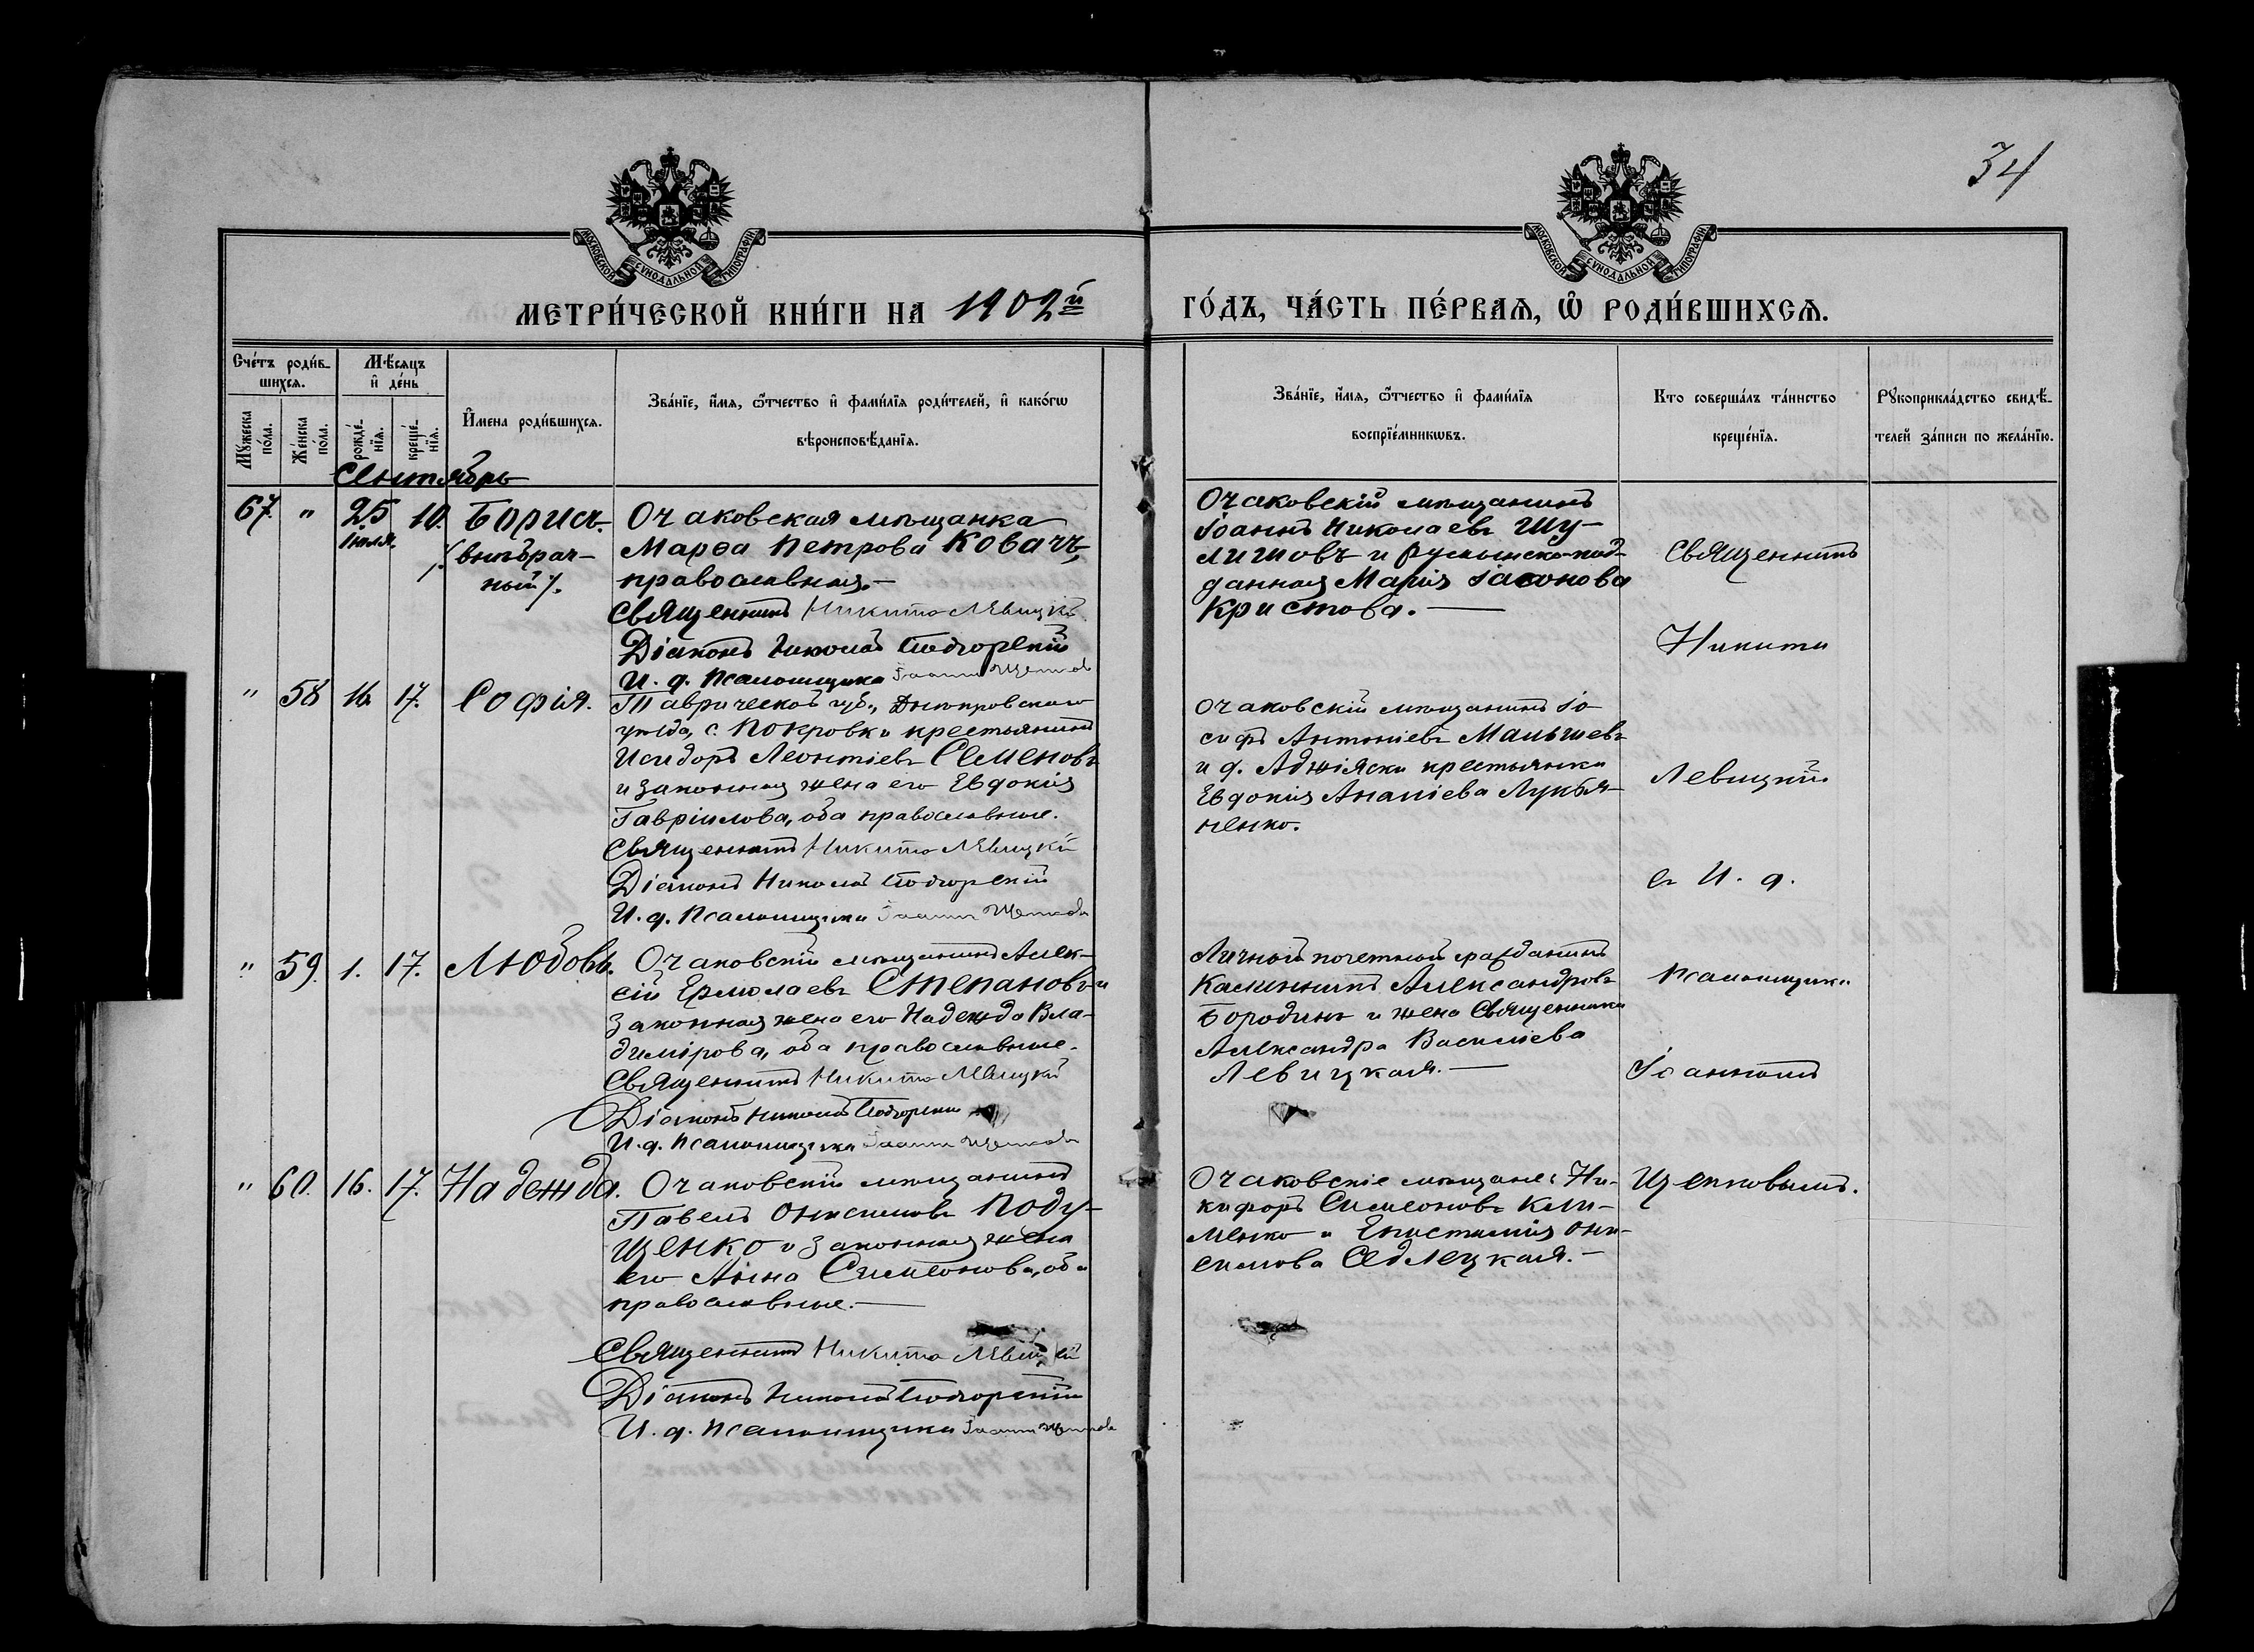 34
МОСКОВСКОЙ СУНОДАЛЬНОЙ ТИПОГРАФІИ
МОСКОВСКОЙ СУНОДАЛЬНОЙ ТИПОГРАФІИ
МЕТРИ́ЧЕСКОЙ КНИ́ГИ НА 1902й
ГО́ДЪ, ЧА́СТЬ ПЕ́РВАЯ, Ѡ РОДИ́ВШИХСЯ.
Сче́тъ роди́в-
шихся.
Мѣ́сяцъ
и де́нь
Мꙋ́жеска
по́ла.
Же́нска
по́ла.
рожде́-
нїя.
креще́-
нїя.
И́мена роди́вшихся.
Зва́нїе, и́мя, ѻ҆́тчество и фами́лїя роди́телей, и како́гѡ
вѣроисповѣ́данїя.
Зва́нїе, и́мя, ѻ҆́тчество и фами́лїя
воспрїе́мникѡвъ.
Кто соверша́лъ та́инство
креще́нїя.
Рꙋкоприкла́дство свидѣ́-
телей за́писи по жела́нїю.
Сентябрь
67. " 25 10. Борисъ.
Іюля.
/внѣбрач-
ный/.
Очаковская мѣщанка
Марѳа Петрова Ковачъ,
православная.—
Священникъ Никита Левицкій
Діаконъ Николай Подгорскій
И. д. Псаломщика Іоаннъ Щепковъ
Очаковскій мѣщанинъ
Іоаннъ Николаевъ Шу-
лимовъ и Румынско-под-
данная Марія Іасонова
Кристова.—
" 58 16 17. Софія.
Таврической губ., Днѣпровскаго
уѣзда, с. Покровки крестьянинъ
Исидоръ Леонтіевъ Семеновъ
и законная жена его Евдокія
Гавріилова, оба православные.
Священникъ Никита Левицкій
Діаконъ Николай Подгорскій
И. д. Псаломщика Іоаннъ Щепковъ
Очаковскій мѣщанинъ Іо-
сифъ Антоніевъ Малышевъ
и д. Аджіяски крестьянка
Евдокія Ананіева Лукья-
ненко.
" 59. 1. 17. Любовь.
Очаковскій мѣщанинъ Алек-
сій Ермолаевъ Степановъ и
законная жена его Надежда Вла-
димірова, оба православные.
Священникъ Никита Левицкій
Діаконъ Николай Подгорскій
И. д. Псаломщика Іоаннъ Щепковъ
Личный почетный гражданинъ
Калинникъ Александровъ
Бородинъ и жена Священника
Александра Василіева
Левицкая.—
" 60. 16. 17. Надежда.
Очаковскій мѣщанинъ
Павелъ Онисимовъ Поду-
щенко и законная жена
его Анна Симеонова, оба
православные.—
Священникъ Никита Левицкій
Діаконъ Николай Подгорскій
И. д. Псаломщика Іоаннъ Щепковъ
Очаковскіе мѣщане: Ни-
кифоръ Симеоновъ Кли-
менко и Епистимія Они-
симова Седлецкая.—
Священникъ
Никита
Левицкій
съ И. д.
Псаломщика
Іоанномъ
Щепковымъ.